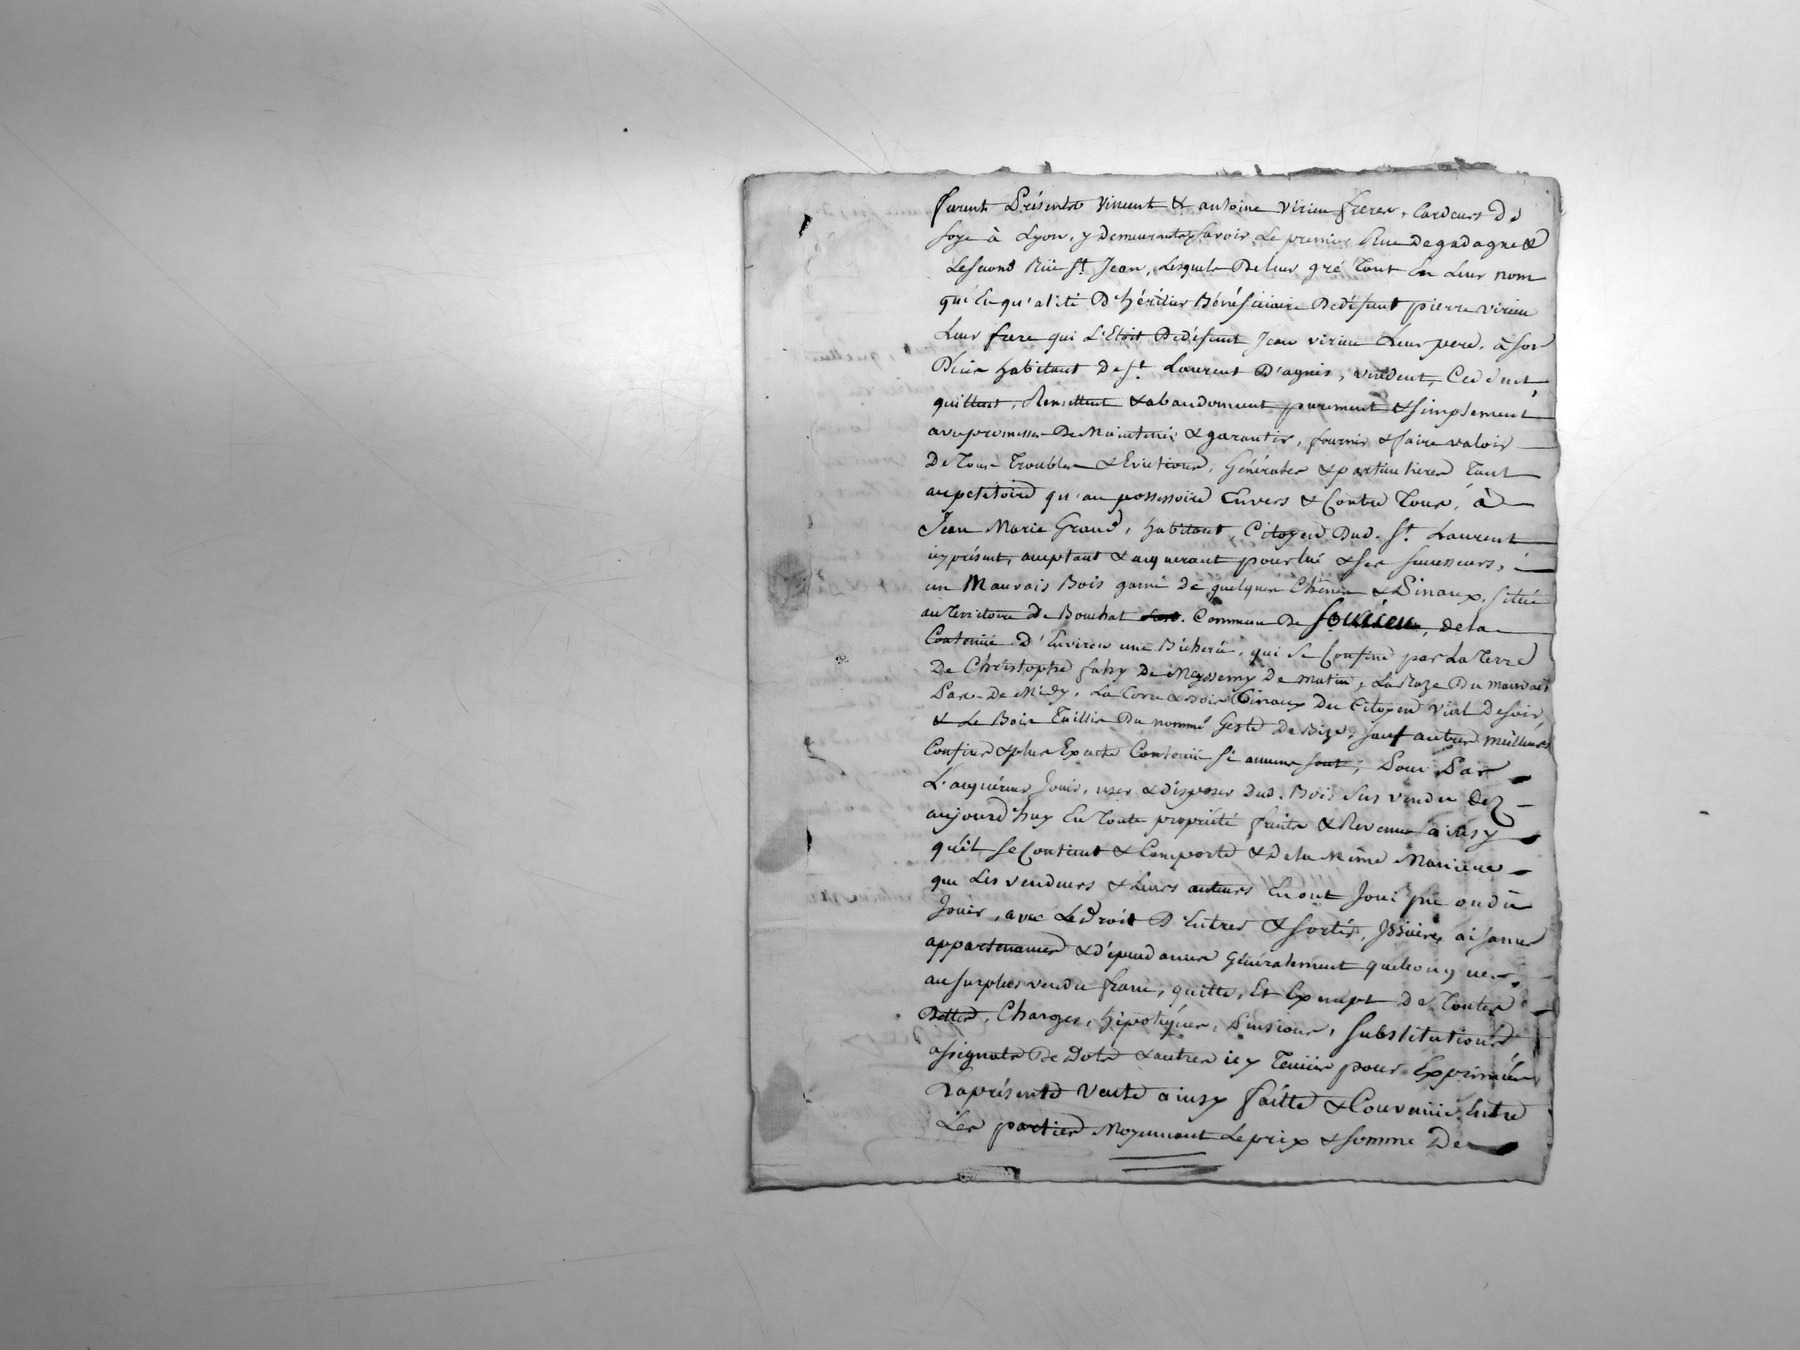 furent Présents Vincent & antoine Virieu freres, Cardeurs De
soye à Lyon, y Demeurants savoir Le premier Rue Degadagne &
Lesecond Rüe St Jean, Lesquels Deleur gré tant En Leur nom
qu'En qu'alité D'héritier Bénéficiaire Dedéfunt pierre virieu
Leur frere qui L'Etoit Dedéfunt Jean virieu Leur pere, à son
Décès habitant De St Laurent D'agnis, vendent, Cedent,
quittent, Remettent & abandonnent purement & simplement
avec promesse De Maintenir & garantir, fournir & faire valoir
De Tous Troubles & Evictions, Générales & particulieres Tant
aupetitoire qu'au possessoire Envers & Contre Tous, à
Jean Marie Grand, habitant, Citoyen Dud. St Laurent
icy présent, acceptant & acquerant pour lui & ses successeurs,
un Mauvais Bois garni de quelques Chênes & Pinaux, située
au Territoire De Bouchat Commune De Soucieu, dela
Contenüe D'Environ une Bicherée, qui se Confine par La Terre
De Christophe fahy De Messimy De matin, La Raze Du mauvais
Pare De Midy, La Terre & Bois Pinaux Du Citoyen Vial De soir,
& Le Bois Taillis Du nommé Geste De Bize, sauf autres meilleurs
Confins & plus Exacte Contenüe si aucuns sont, Pour Par
L'acquéreur Jouir, user & disposer Dud. Bois sus vendu Dez
aujourd'huy En Toute propriété fruits & Revenus ainsy
qu'il se Contient & Comporte & Dela Même Maniere
que Les vendeurs & Leurs auteurs En ont Joui pûe ou dû
Jouir, avec Le Droit D'Entrer & sortir, Issües, aisances
appartenances & dépendances Généralement quelconques,
au surplus vendu franc, quitte, Et Exempt De Toutes
Dettes, Charges, hipotéques, Pensions, substitutions
assignats De Dots & autres icy Tenües pour Exprimées
Laprésente Vente ainsy faitte & Convenüe Entre
Les parties Moyennant Le prix & somme De